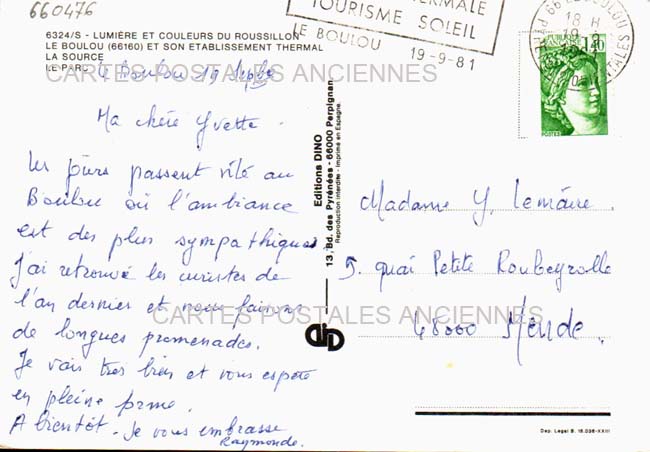 660476
6324/S - LUMIÈRE ET COULEURS DU ROUSSILLON
LE BOULOU (66160) ET SON ETABLISSEMENT THERMAL
LA SOURCE
LE PARC
THERMALE
TOURISME SOLEIL
LE BOULOU 19-9-81
66 LE BOULOU
18 H
19-9
1981
PYRENEES ORIENTALES
1,40
CARTES POSTALES ANCIENNES
Le Boulou 19 Septe
Ma chère Yvette.
Les jours passent vite au
Boulou où l'ambiance
est des plus sympathiques.
J'ai retrouvé les curistes de
l'an dernier et nous faisons
de longues promenades.
Je vais très bien et vous espère
en pleine forme.
A bientôt. Je vous embrasse
Raymonde.
Editions DINO
13, Bd. des Pyrénées - 66000 Perpignan
Reproduction interdite - Imprimé en Espagne
Madame Y. Lemaire
5. quai Petite Roubeyrolle
48000 Mende.
CARTES POSTALES ANCIENNES
Dep. Legal B. 18.036-XXIII